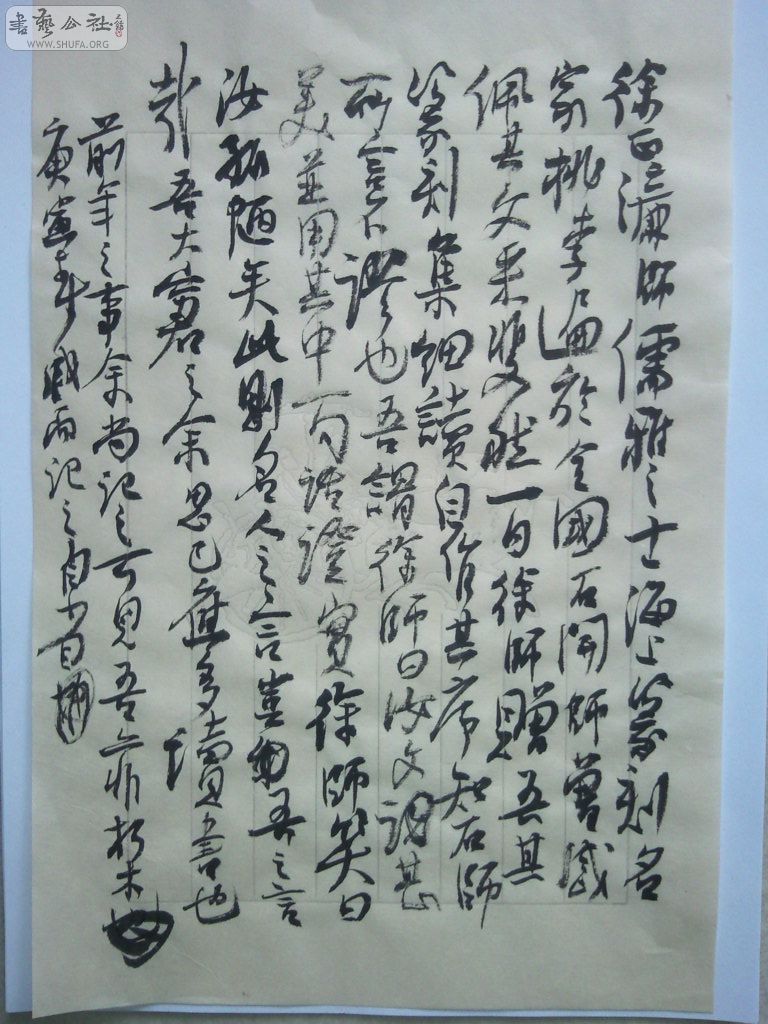 書藝公社
WWW.SHUFA.ORG
徐正濂師儒雅之士海上篆刻名
家桃李遍於全國石開師曾感
佩其文采斐然一日徐師贈吾其
篆刻集細讀自作其序知石師
所言不謬也吾謂徐師曰汝文詞甚
美並用其中一句話證實徐師笑曰
汝孤陋矣此則名人之言豈為吾之言
哉吾大窘之余思己應多讀書也
前年之事余尚記之可見吾亦非朽木也
庚寅春感而記之自省